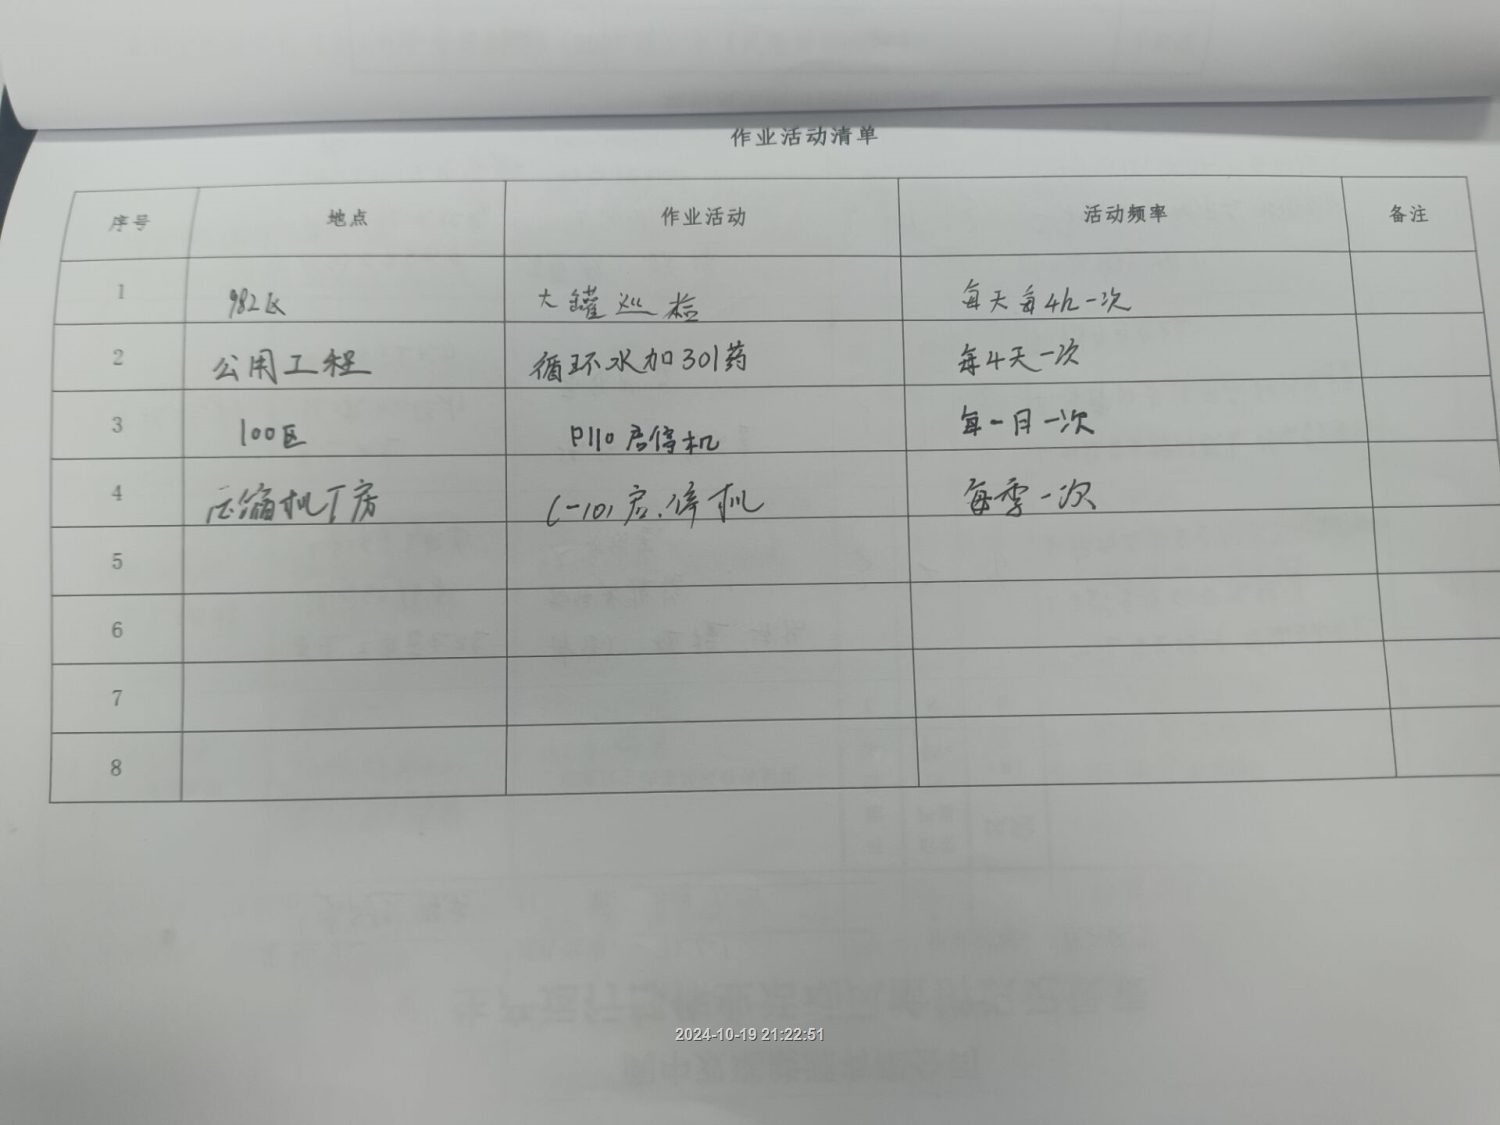 作业活动清单
序号 地点 作业活动 活动频率 备注
1 982区 大罐巡检 每天每4h一次
2 公用工程 循环水加301药 每4天一次
3 100区 P110启停机 每一月一次
4 压缩机厂房 C-101启.停机 每季一次
5
6
7
8
2024-10-19 21:22:51